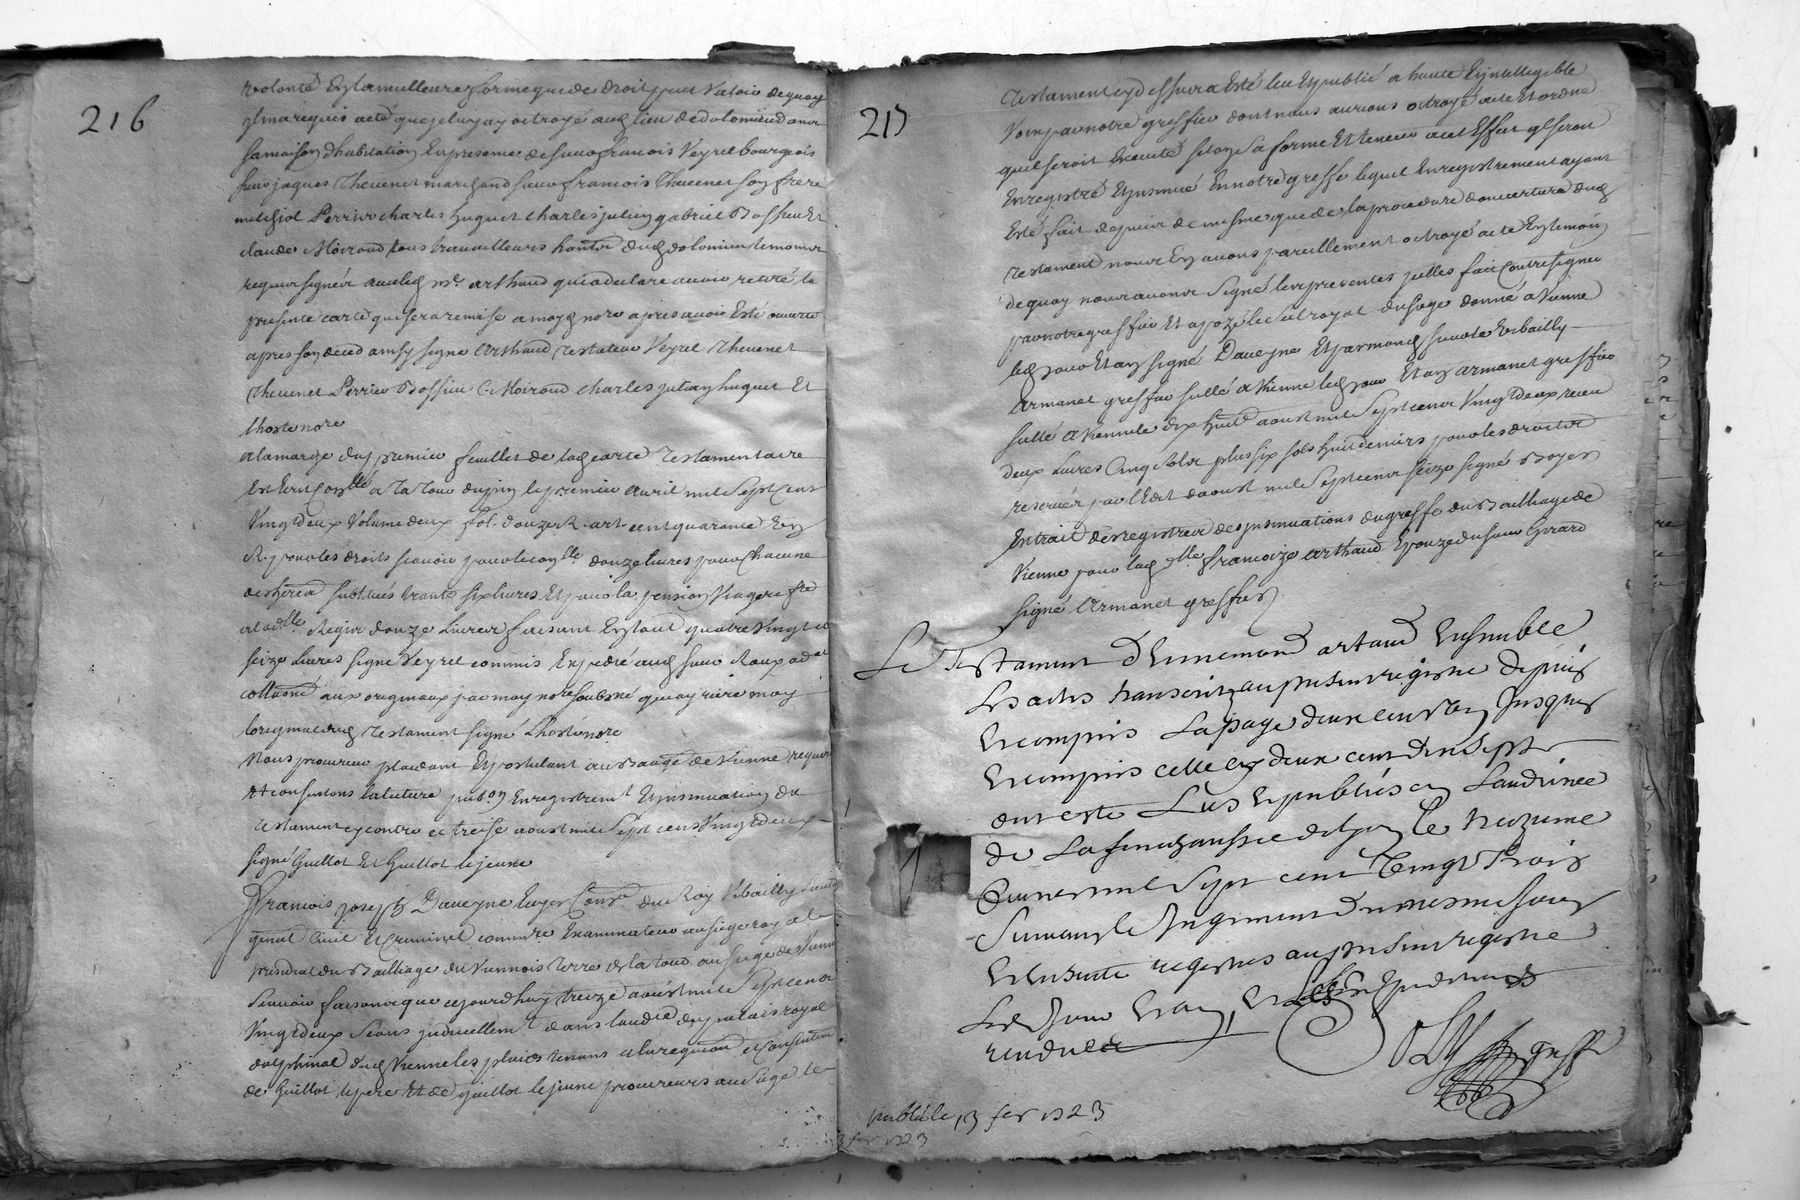 216
volonté Et la meilleure forme que de droit peut Valoir dequoy
il m'a requis acte que je luy ay octroyé aud lieu de dolomieu dans
sa maison d'habitation En presence de sieur francois Veyret bourgeois
sieur jaques Thevenet marchand sieur francois Thevenet son frere
melchiol Perrin charles huguet charles julien gabriel Bossieu Et
claude Moiroud tous travailleurs dud dolomieu temoins
requis signés avec led Mr arthaud qui a declaré avoir retiré la
presente carte qui sera remise a moyd nore apres avoir Esté ouverte
apres son deced ainsy signe Arthaud testateur Veyret Thevenet
Thevenet Perrin Bossieu C. Moiroud charles julien huguet Et
lhoste nore
a la marge du premier feuillet de lad carte Testamentaire
Est Ecrit conlle a la Tour dupin le premier avril mil Sept Cent
Vingt deux Volume deux fol. douze R. art. cent quarante Et
R. pour les droits scavoir pour le conlle douze livres pour chacune
des substitués trante six livres Et pour la pension Viagere
a lad lle Regis douze Livres faisant En tout quatre Vingt et
seize Livres signe Veyret commis Expedié aud sieur Roux
collaoné aux originaux par moy nore soubsné quay riere moy
loriginal dud Testament signé Lhoste nore
Nous procureur plaidant Et postulant au Baage de Vienne requer
Et consentons la lecture pubon Enregistremt Et insinuation du
Testament cy contre ce treise aoust mil Sept cens Vingt deux
signé Guillot Et Guillot le jeune
Francois joseph Daveyne Euyer Conser du Roy Vibailly Lieut
gneral Civil Et Criminel commre Examinateur au siege royal
presidial du Bailliage du Viennois Terre de la tour au siege de Vienne
Scavoir faisons que cejourdhuy treize aoust mil Sept cens
Vingt deux Seans judiciellemt dans laudce du palais royal
dalphinal dud Vienne les plaids tenans a la requion et Consentem
de Guillot le pere Et de guillot le jeune procureurs au Siege le
217
Testament cy dessus a Esté leu Et publié a haute Et intelligible
Voix par notre greffier dont nous avrions octroyé acte Et ordné
quil seroit Executé selon sa forme Et teneur a cet Effet quil seroit
Enregistré Et insinué En notre greffe lequel Enregistrement ayant
Esté fait depuis de mesme que de la procedure douverture dud
Testament nous En avons pareillement octroyé acte En temoin
de quoy nous avons Signé les presentes jcelles fait Contresigner
par notre greffier Et apozé le Sel royal du siege donné a Vienne
led jour Et an signé Daveyne Et par mond sieur le Vibailly
Armanet greffier sellé a Vienne led jour Et an armanet greffier
sellé a Vienne le dix huite aoust mil Sept cens Vingt deux receu
deux Livres Cinq Sols plus six sols huit deniers pour les droits
reservés par lEdit daoust mil Sept cens Seize signé Boyer
Extrait des registres des insinuations du greffe du Bailliage de
Vienne pour lad dlle francoize arthaud Epouze du sieur Girard
signé Armanet greffier
Le Testament d'Ennemond artaud Ensemble
Les actes transcrits au present registre depuis
Et compris La page deux cent Jusques
Et compris celle cy deux cent dix Sept
ont esté Lus Et publiés en Laudience
de La senechaussée de Lyon Le treizieme
fevrier mil Sept cent Vingt Trois
Suivant le Jugement du mesme Jour
Et Ensuite registrés au present registre
Lesd Jour Et an,
rendue
greff
publié le 13 fev 1723
3 fev 1723